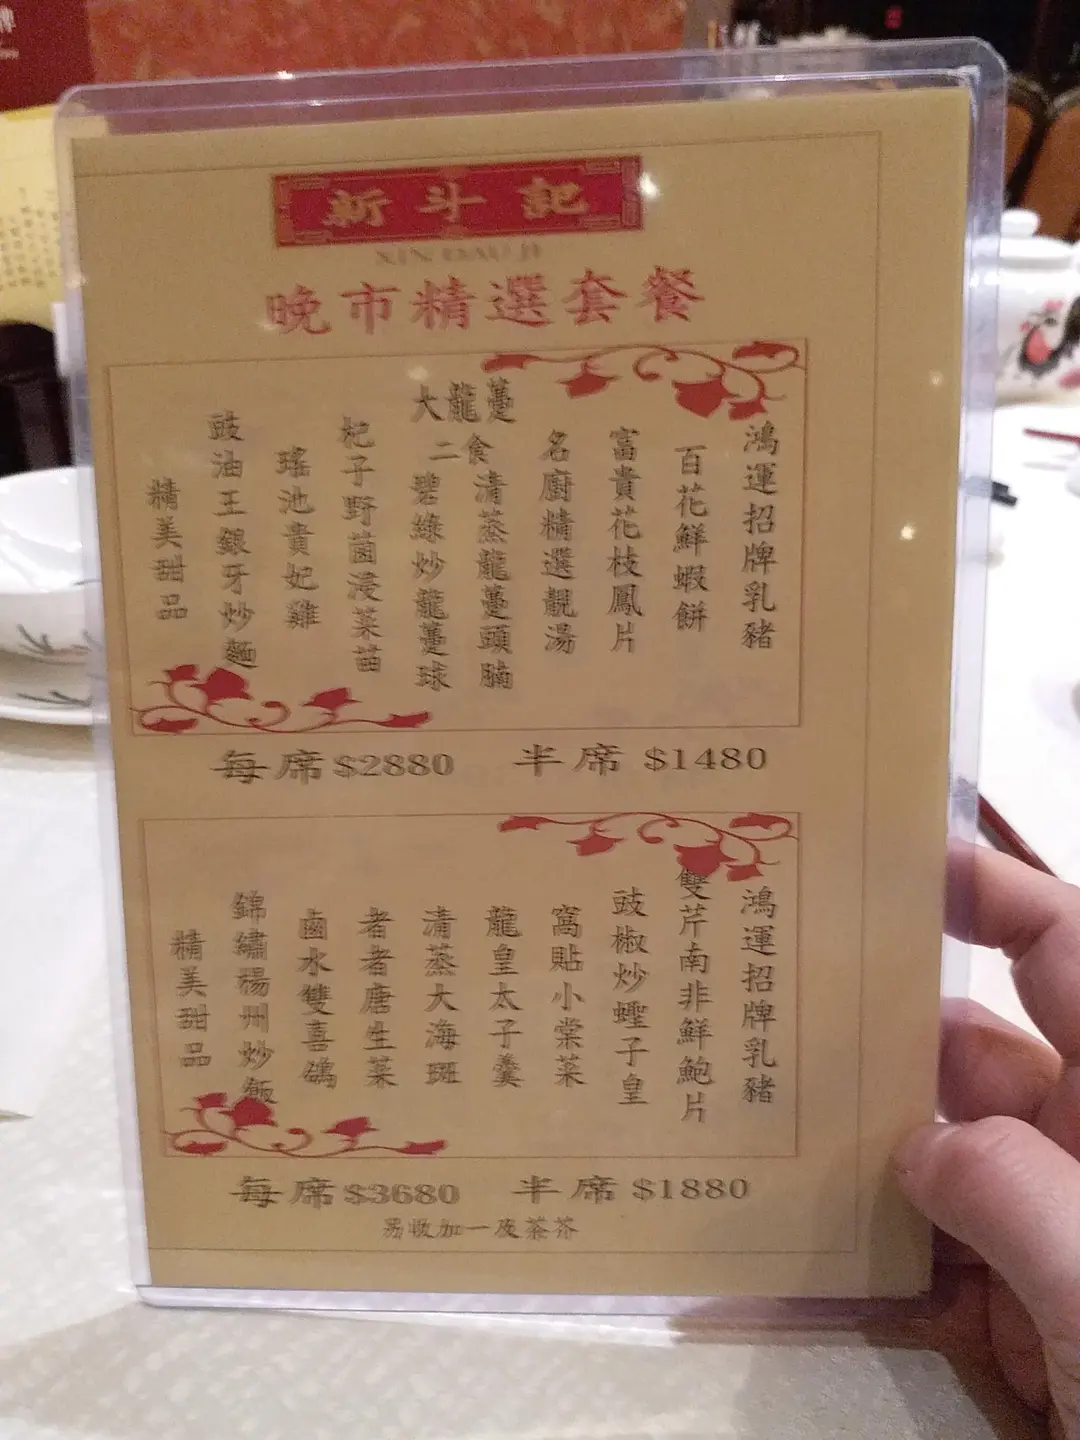 新斗記
XIN DAU JI
晚市精選套餐
鴻運招牌乳豬
百花鮮蝦餅
富貴花枝鳳片
名廚精選靚湯
大龍躉
二食
清蒸龍躉頭腩
碧綠炒龍躉球
杞子野菌浸菜苗
瑤池貴妃雞
豉油王銀牙炒麵
精美甜品
每席$2880
半席 $1480
鴻運招牌乳豬
雙芹南非鮮鮑片
豉椒炒蟶子皇
窩貼小棠菜
龍皇太子羹
清蒸大海斑
者者唐生菜
鹵水雙喜鴿
錦繡楊州炒飯
精美甜品
每席$3680
半席 $1880
另收加一及茶芥